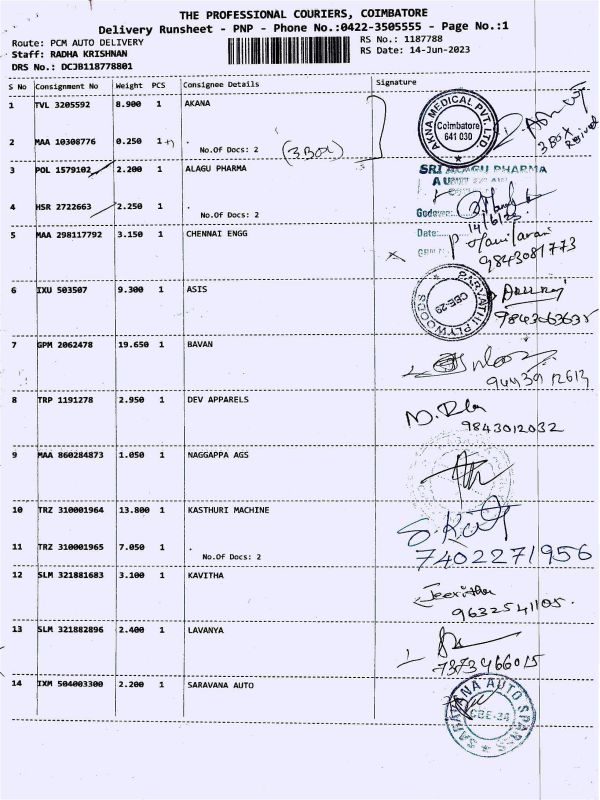 THE PROFESSIONAL COURIERS, COIMBATORE
Delivery Runsheet - PNP - Phone No.:0422-3505555 - Page No.:1
Route: PCM AUTO DELIVERY
RS No.: 1187788
Staff: RADHA KRISHNAN
RS Date: 14-Jun-2023
DRS No.: DCJB118778801
S No Consignment No Weight PCS Consignee Details Signature
1 TVL 3205592 8.900 1 AKANA
AKNA MEDICAL PVT LTD
Coimbatore
641 030
3 BOX
2 MAA 10308776 0.250 1 .
No.Of Docs: 2
(3 BOX)
3 POL 1579102 2.200 1 ALAGU PHARMA
SRI ALAGU PHARMA
4 HSR 2722663 2.250 1 .
No.Of Docs: 2
Godown:
14/6/23
Date:
5 MAA 298117792 3.150 1 CHENNAI ENGG
9843081773
6 IXU 503507 9.300 1 ASIS
PARVATHI PLYWOODS
CBE-29
7 GPM 2062478 19.650 1 BAVAN
9443912613
8 TRP 1191278 2.950 1 DEV APPARELS
9843012032
9 MAA 860284873 1.050 1 NAGGAPPA AGS
10 TRZ 310001964 13.800 1 KASTHURI MACHINE
11 TRZ 310001965 7.050 1 .
No.Of Docs: 2
7402271956
12 SLM 321881683 3.100 1 KAVITHA
Jeevitha
9632541105.
13 SLM 321882896 2.400 1 LAVANYA
7373466015
14 IXM 504003300 2.200 1 SARAVANA AUTO
SARAVANA AUTO SPARES
CBE-34